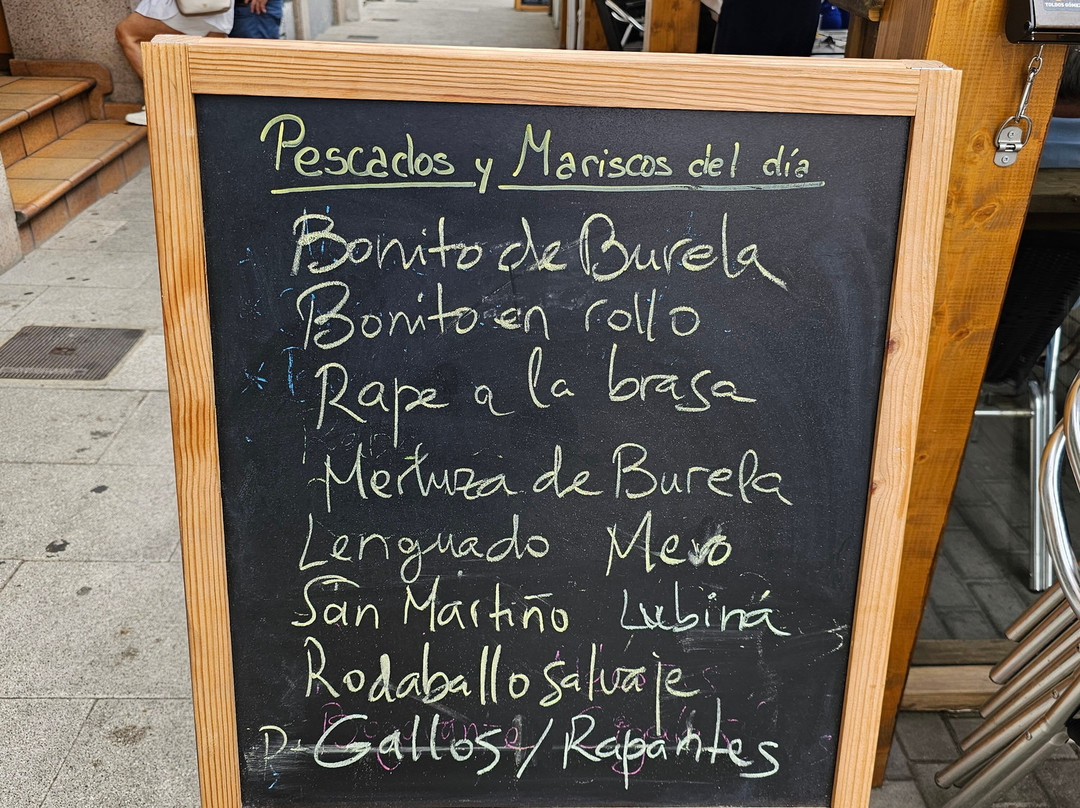 Pescados y Mariscos del día
Bonito de Burela
Bonito en rollo
Rape a la brasa
Merluza de Burela
Lenguado Mero
San Martiño Lubiná
Rodaballo salvaje
Gallos / Rapantes